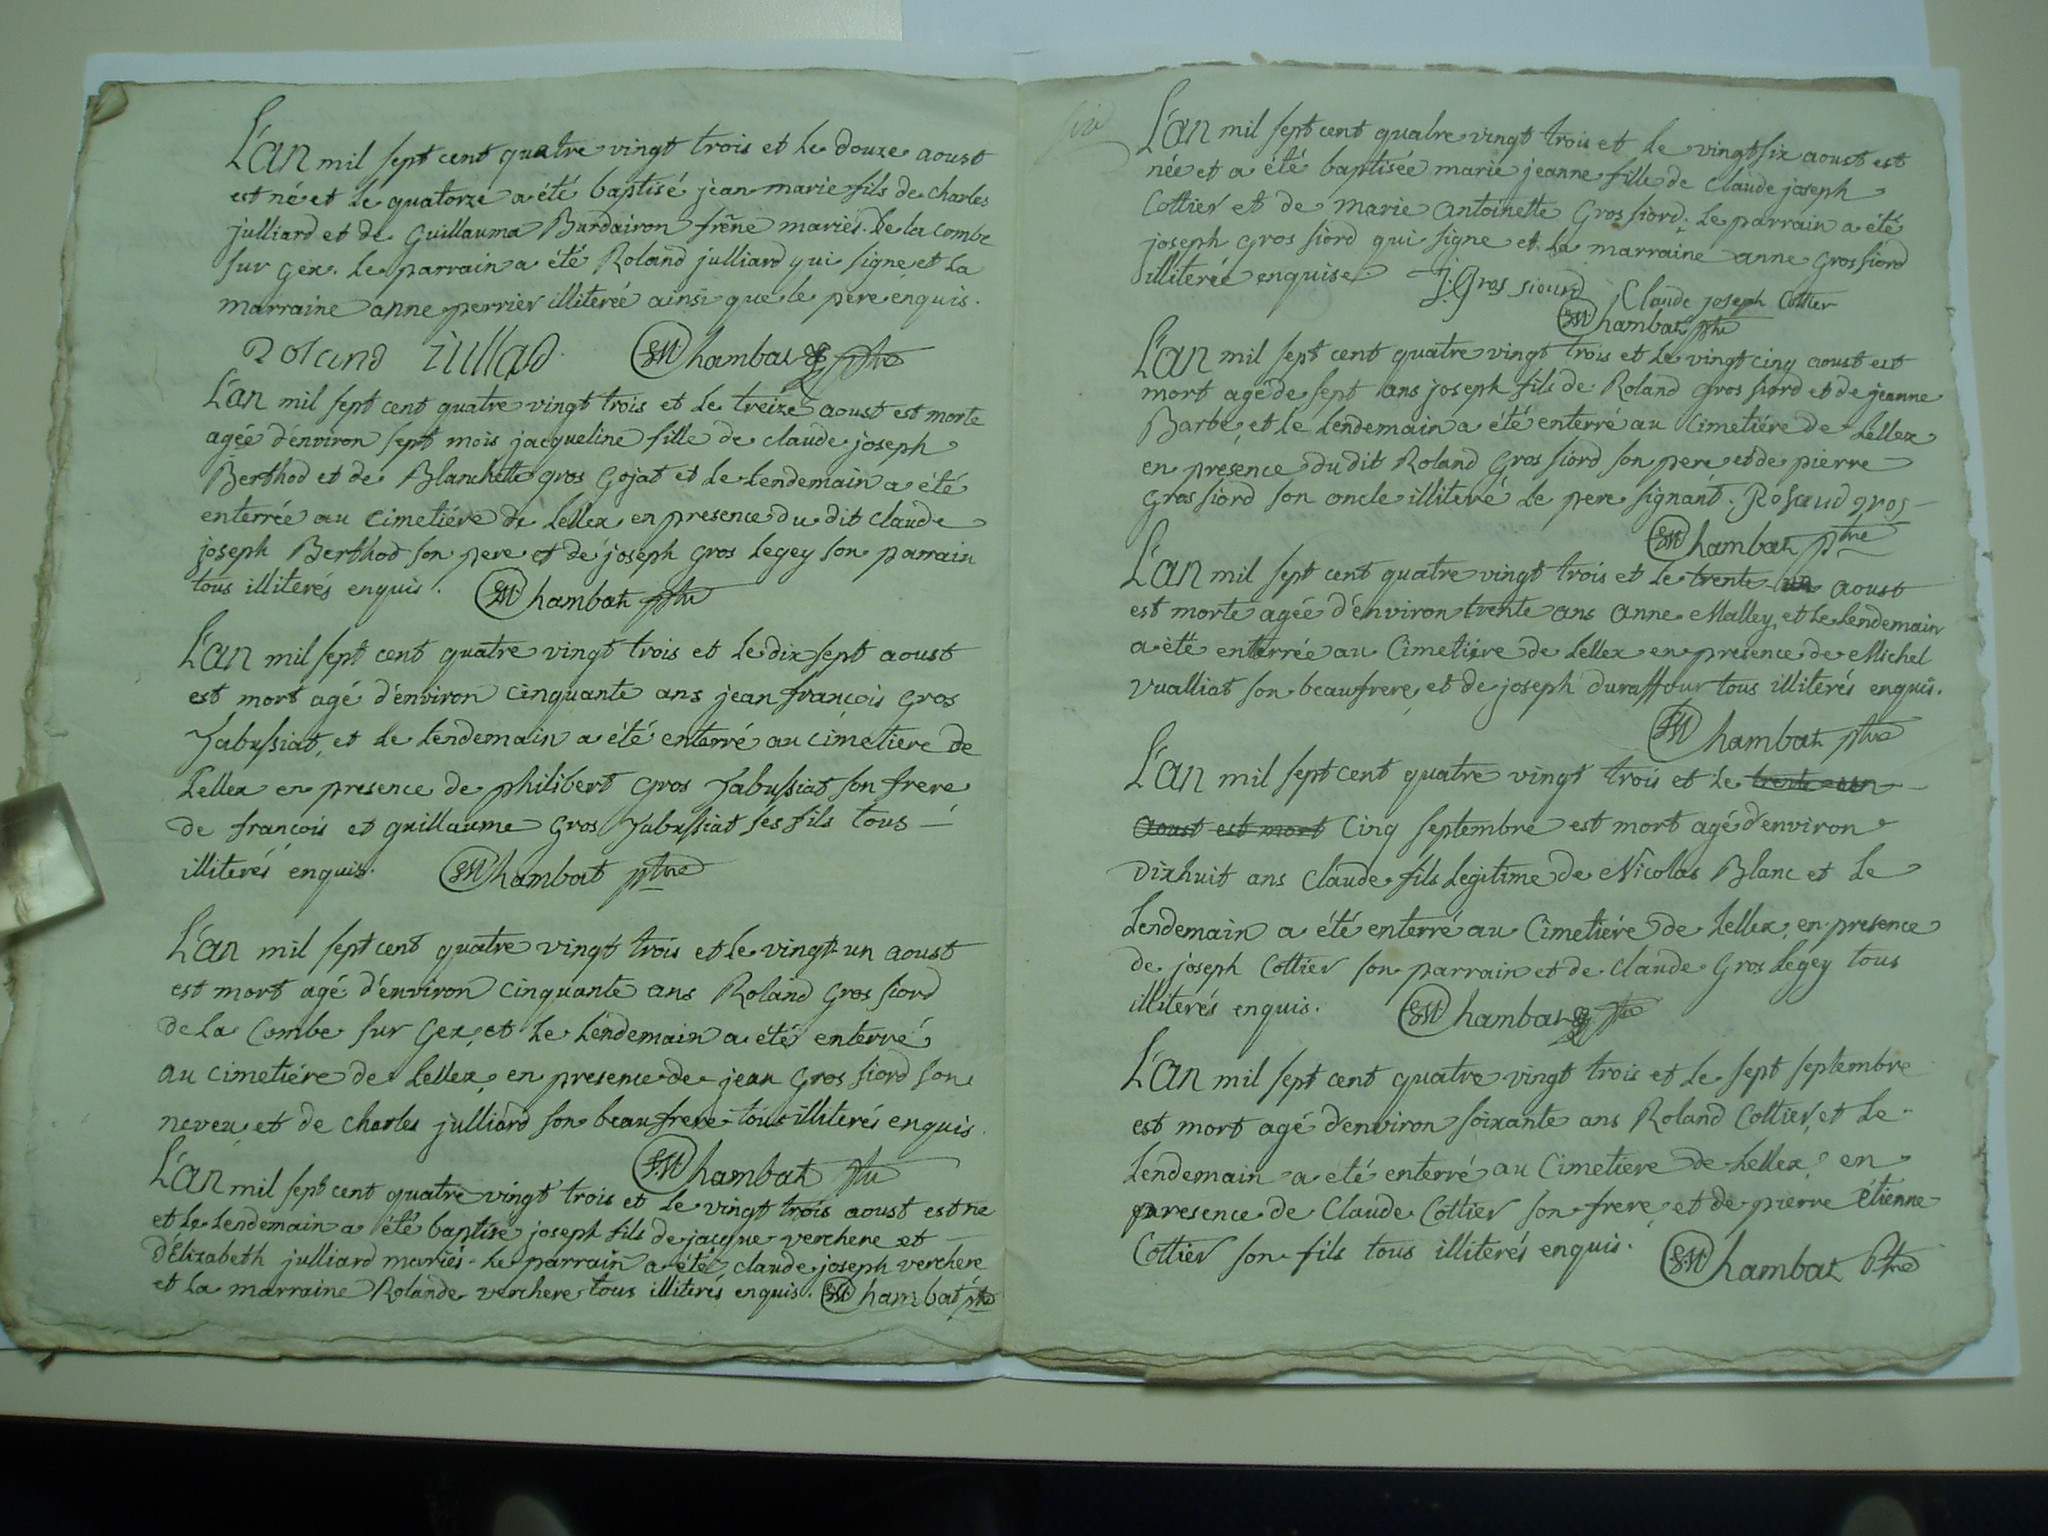 L'an mil sept cent quatre vingt trois et le douze aoust
est né et le quatorze a été baptisé jean marie fils de charles
julliard et de Guillauma Burdairon frēne mariés. de la combe
sur gex. le parrain a été Roland julliard qui signe, et la
marraine anne perrier illiterée ainsi que le pere enquis.
Roland Jullad. Chambaz ptre
L'an mil sept cent quatre vingt trois et le treize aoust est morte
agée d'environ sept mois jacqueline fille de claude joseph
Berthod et de Blanchette gros Gojat et le lendemain a été
enterrée au cimetiére de Lellex en presence du dit claude
joseph Berthod son pere et de joseph gros legey son parrain
tous illiterés enquis. Chambaz ptre
L'an mil sept cent quatre vingt trois et le dix sept aoust
est mort agé d'environ cinquante ans jean françois gros
Jabussiat, et le lendemain a été enterré au cimetiere de
Lellex en presence de philibert gros Jabussiat son frere
de françois et guillaume gros Jabussiat sés fils tous
illiterés enquis. Chambat ptre
L'an mil sept cent quatre vingt trois et le vingt-un aoust
est mort agé d'environ cinquante ans Roland gros siord
de la Combe sur Gex, et le lendemain a été enterré
au cimetiére de Lellex, en presence de jean gros siord son
neveu, et de charles julliard son beaufrere tous illiterés enquis.
Chambaz ptre
L'an mil sept cent quatre vingt trois et le vingt trois aoust est né
et le lendemain a été baptisé joseph fils de jacque verchere et
d'Elizabeth julliard mariés. le parrain a été claude joseph verchere
et la marraine Rolande verchere tous illiterés enquis. Chambat ptre
L'an mil sept cent quatre vingt trois et le vingt six aoust est
née et a été baptisée marie jeanne fille de claude joseph
Cottier et de marie antoinette Gros siord. le parrain a été
joseph gros siord qui signe et la marraine anne gros siord
illiterée enquise. J. Gros siourd Claude joseph Cottier
Chambaz ptre
L'an mil sept cent quatre vingt trois et le vingt cinq aoust est
mort agé de sept ans joseph fils de Roland gros siord et de jeanne
Barbe, et le lendemain a été enterré au cimetiére de Lellex
en presence du dit Roland Gros siord son pere et de pierre
Gros siord son oncle illiteré le pere signant. Rolaud gros
Chambaz ptre
L'an mil sept cent quatre vingt trois et le trente un aoust
est morte agée d'environ trente ans anne Malley, et le lendemain
a été enterrée au Cimetiére de Lellex en presence de Michel
Vualliat son beaufrere, et de joseph duraffour tous illiterés enquis.
Chambaz ptre
L'an mil sept cent quatre vingt trois et le trente un
aoust est mort Cinq septembre est mort agé d'environ
dixhuit ans Claude fils legitime de Nicolas Blanc et le
lendemain a été enterré au Cimetiére de Lellex, en presence
de joseph Cottier son parrain et de claude Gros legey tous
illiterés enquis. Chambaz ptre
L'an mil sept cent quatre vingt trois et le sept septembre
est mort agé d'environ soixante ans Roland Cottier, et le
lendemain a eté enterré au Cimetiere de Lellex, en
presence de Claude Cottier son frere, et de pierre étienne
Cottier son fils tous illiterés enquis. Chambaz Ptre